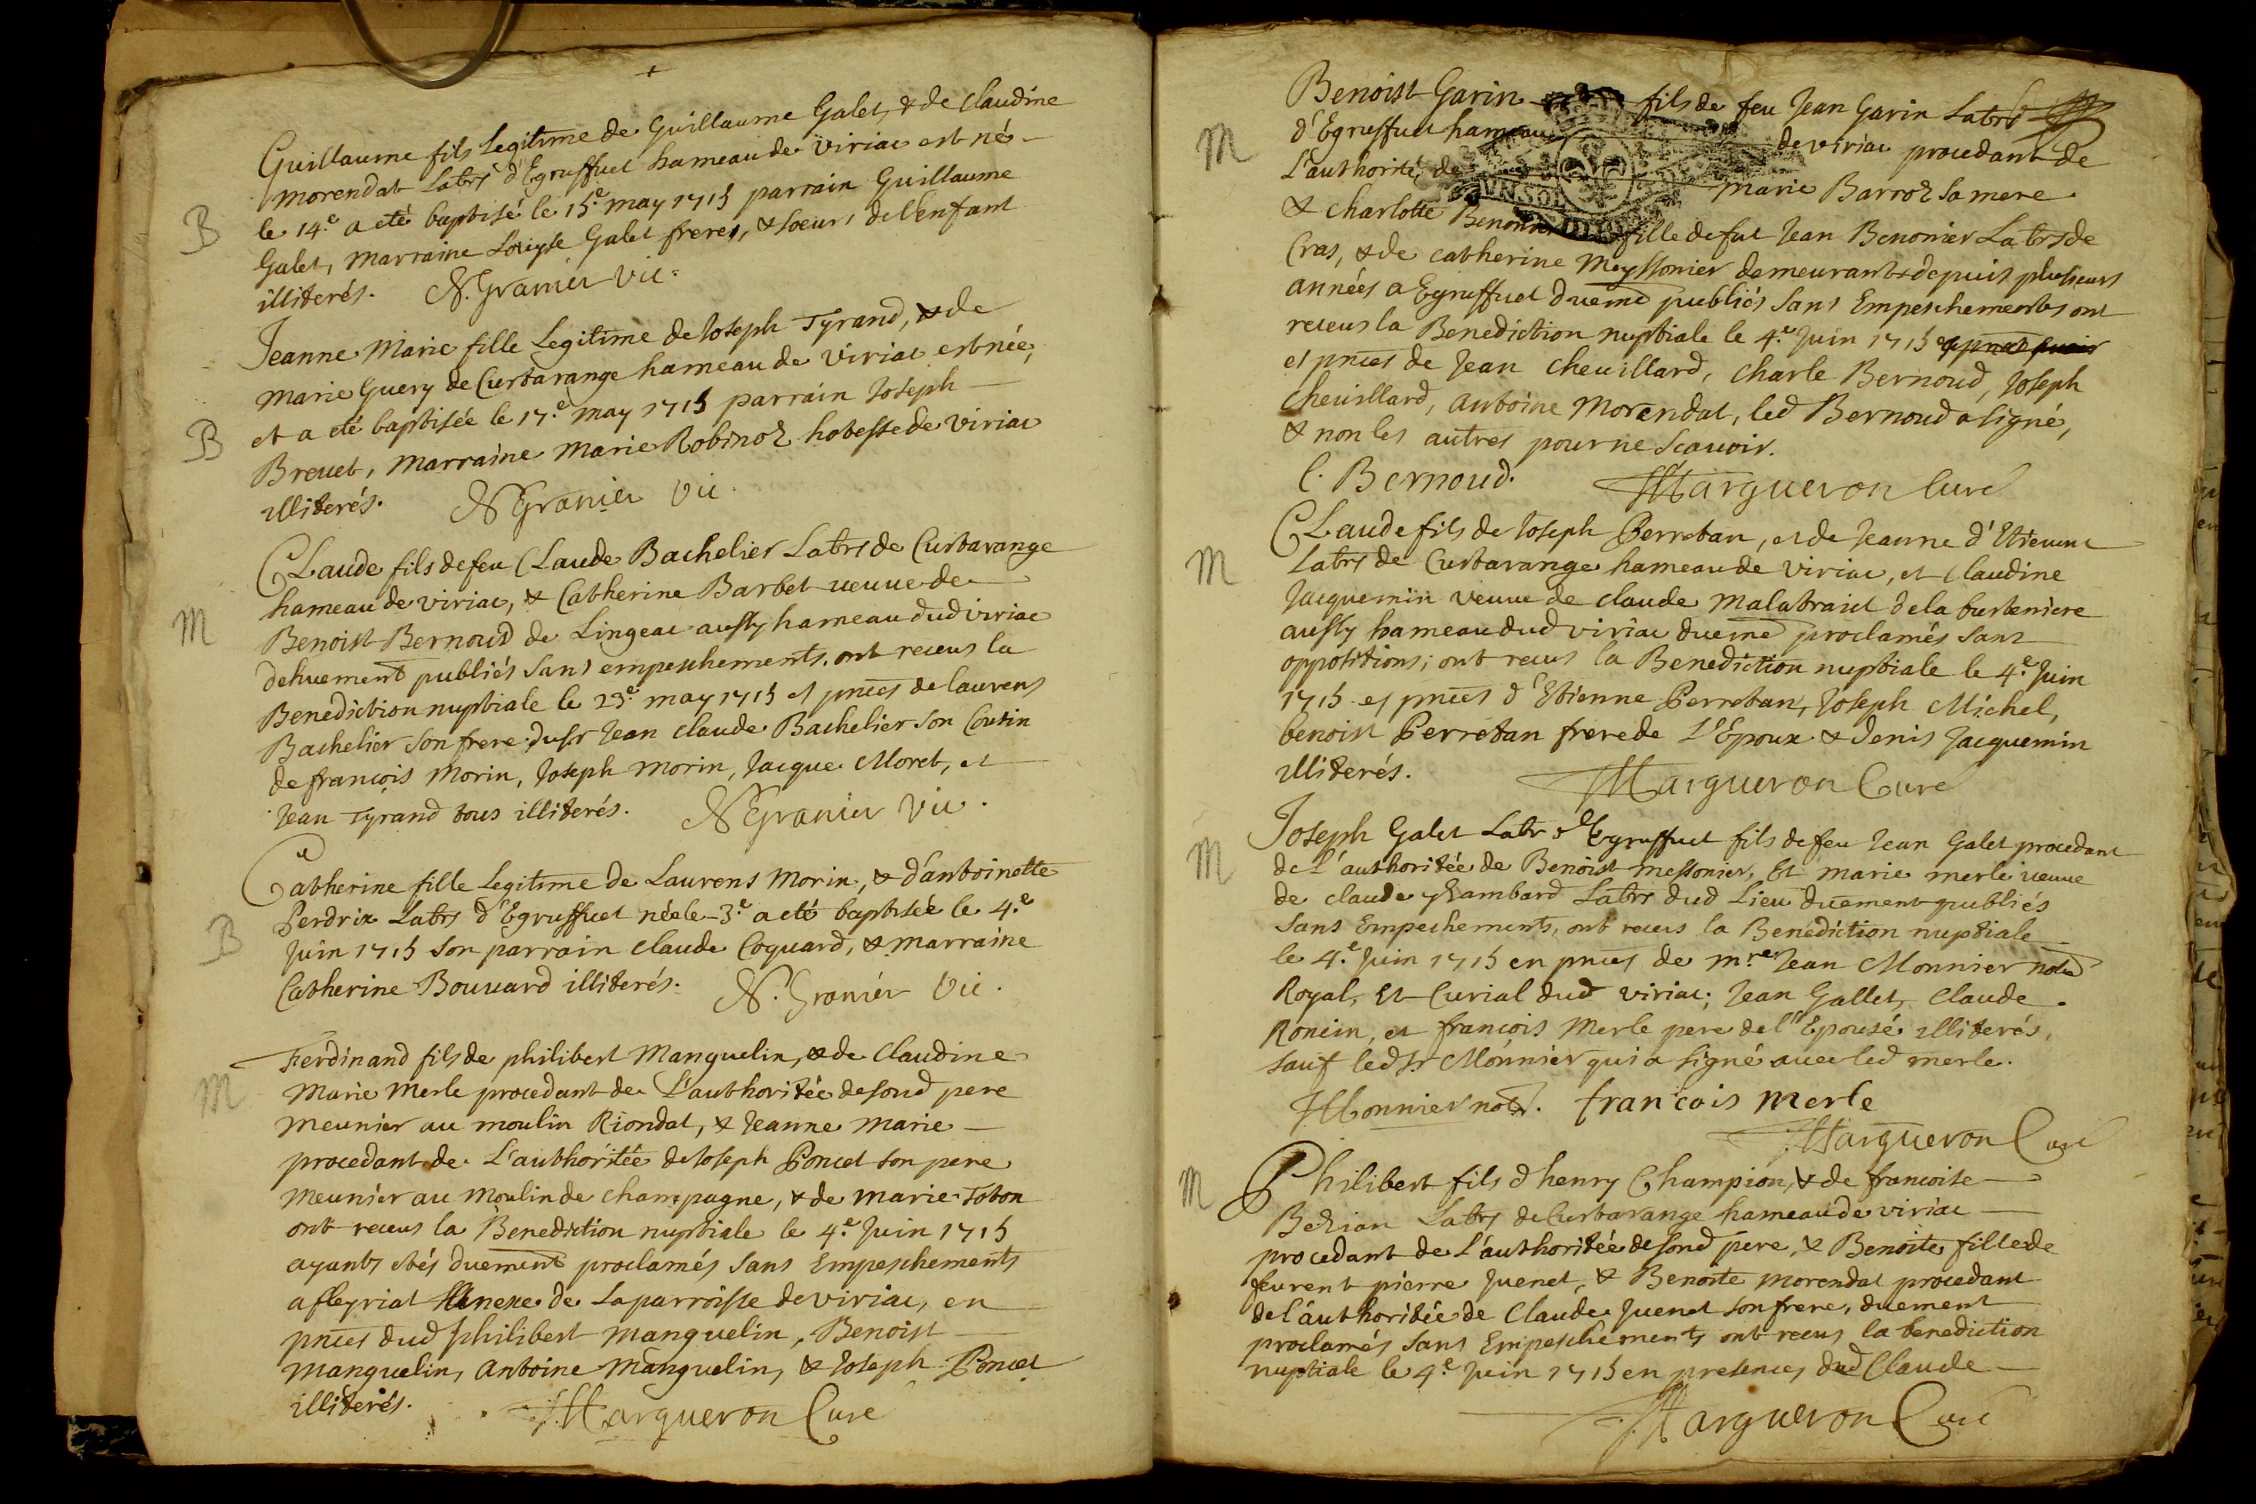 Guillaume fils Legitime de Guillaume Galet, & de claudine
morendat Labrs d'Egruffuel hameau de viriac est né
B
le 14.e a eté baptisé le 15.e may 1715 parrain Guillaume
Galet, marraine Loüyse Galet freres, & soeurs de l'enfant
illiterés. N. Granier vic.
Jeanne Marie fille Legitime de Joseph Tyrand, & de
Marie Guery de Curtarange hameau de viriac est née,
B
et a eté baptisée le 17.e may 1715 parrain Joseph
Brevet, marraine Marie Robinoz hotesse de viriac
illiterés. N Granier vic.
Claude fils de feu Claude Bachelier Labrs de Curtarange
hameau de viriac, & Catherine Barbet veuve de
M
Benoist Bernoud de Lingeac aussy hameau dud viriac
dehuement publiés sans empeschements. ont receus la
Benediction nuptiale le 23.e may 1715 es pnces de laurens
Bachelier son frere. dusr Jean claude Bachelier son Cousin
de françois Morin, Joseph morin, Jacque Moret, et
Jean Tyrand tous illiterés. N Granier vic.
Catherine fille Legitime de Laurens Morin, & d'antoinette
Perdrix Labrs d'Egruffuel née le 3.e a eté baptisée le 4.e
B
Juin 1715 son parrain claude Coquard, & marraine
Catherine Bouvard illiterés. N. Granier vic.
Ferdinand fils de philibert Manguelin, & de Claudine
M
Marie Merle procedant de L'authoritée de soud pere
meunier au moulin Riondat, & Jeanne Marie
procedant de L'authoritée de Joseph Poncet son pere
meunier au moulin de champagne, & de marie Tobon
ont receus la Benediction nuptiale le 4.e Juin 1715
ayants étés duement proclamés sans Empeschements
a fleyriat Annexe de La parroisse de viriac, en
pnces dud philibert manguelin, Benoist
manguelin, antoine manguelin, & Joseph Poncet
illiterés. Margueron Curé
Benoist Garin fils de feu Jean Garin Labrs
M
d'Egruffuel hameau de viriac procedant de
L'authorité de Marie Barroz sa mere
& charlotte Benonier fille de fut Jean Benonier Labrs de
Cras, & de catherine Meyssonier demeurante depuis plusieurs
années a Egruffuel duemt publiés sans Empeschements ont
receus la Benediction nuptiale le 4.e Juin 1715
es pnces de Jean cheuillard, charle Bernoud, Joseph
Cheuillard, antoine Morendat, led Bernoud a signé,
& non les autres pour ne scavoir.
C. Bernoud. Margueron Curé
Claude fils de Joseph Perretan, et de Jeanne d'Etienne
M
Labrs de Curtarange hameau de viriac, et Claudine
Jacquemin veuve de claude Malatraict de la burteniere
aussy hameau dud viriac duemt proclamés sans
oppositions; ont receus la Benediction nuptiale le 4.e Juin
1715 es pnces d'Etienne Perretan, Joseph Michel,
benoist Perretan frere de L'Epoux & denis Jacquemin
illiterés. Margueron Curé
Joseph Galet Labr d'Egruffuel fils de feu Jean Galet procedant
M
de L'authoritée de Benoist Messonier, Et marie merle veuve
de claude Rambard Labrs dud Lieu duement publiés
sans Empeschements, ont receus la Benediction nuptiale
le 4.e Juin 1715 en pnces de m.re Jean Monnier notre
Royal, Et Curial dud viriac; Jean Gallet, Claude
Roncin, et francois Merle pere de l'Epousé illiterés,
sauf led sr Monnier qui a signé avec led merle.
Monnier notr. francois merle
Margueron Curé
M
Philibert fils d'henry Champion, & de francoise
Bezian Labrs de Curtarange hameau de viriac
procedant de L'authoritée de soud pere, & Benoite fille de
feurent pierre Juenet, & Benoite morendat procedant
de l'authoritée de Claude Juenet son frere, duement
proclamés sans Empeschements ont receus la benediction
nuptiale le 4.e Juin 1715 en presences dud Claude
Margueron Curé